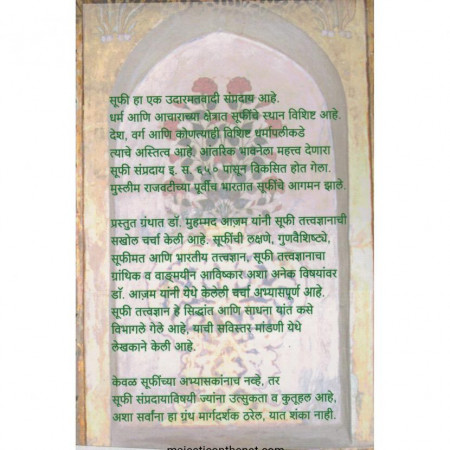 सूफी हा एक उदारमतवादी संप्रदाय आहे.
धर्म आणि आचाराच्या क्षेत्रात सूफींचे स्थान विशिष्ट आहे.
देश, वर्ग आणि कोणत्याही विशिष्ट धर्मापलीकडे
त्याचे अस्तित्व आहे. आंतरिक भावनेला महत्त्व देणारा
सूफी संप्रदाय इ. स. ६५० पासून विकसित होत गेला.
मुस्लीम राजवटीच्या पूर्वीच भारतात सूफींचे आगमन झाले.
प्रस्तुत ग्रंथात डॉ. मुहम्मद आज़म यांनी सूफी तत्त्वज्ञानाची
सखोल चर्चा केली आहे. सूफींची लक्षणे, गुणवैशिष्ट्ये,
सूफीमत आणि भारतीय तत्त्वज्ञान, सूफी तत्त्वज्ञानाचा
ग्रांथिक व वाङ्मयीन आविष्कार अशा अनेक विषयांवर
डॉ. आज़म यांनी येथे केलेली चर्चा अभ्यासपूर्ण आहे.
सूफी तत्त्वज्ञान हे सिद्धांत आणि साधना यांत कसे
विभागले गेले आहे, याची सविस्तर मांडणी येथे
लेखकाने केली आहे.
केवळ सूफींच्या अभ्यासकांनाच नव्हे, तर
सूफी संप्रदायाविषयी ज्यांना उत्सुकता व कुतूहल आहे,
अशा सर्वांना हा ग्रंथ मार्गदर्शक ठरेल, यात शंका नाही.
majesticonthenet.com